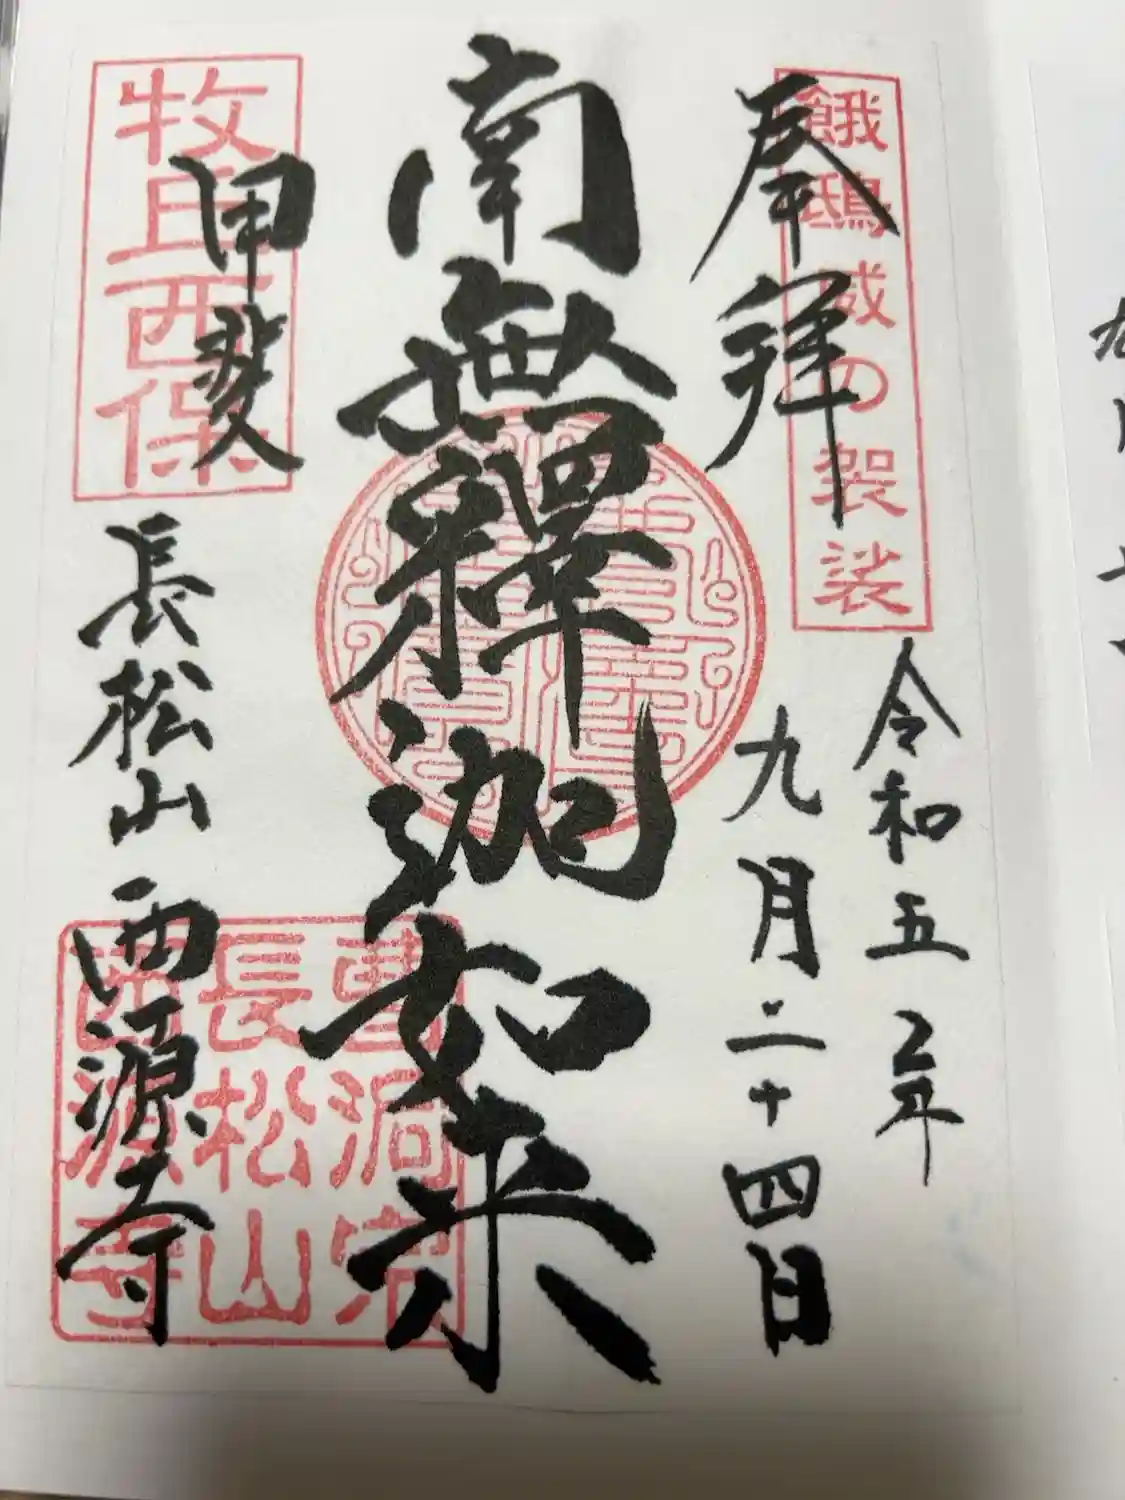 奉拝
餓鴟威の袈裟
令和五年
九月二十四日
南無釋迦如来
牧丘西保
甲斐
長松山 西源寺
曹洞宗
長松山
西源寺